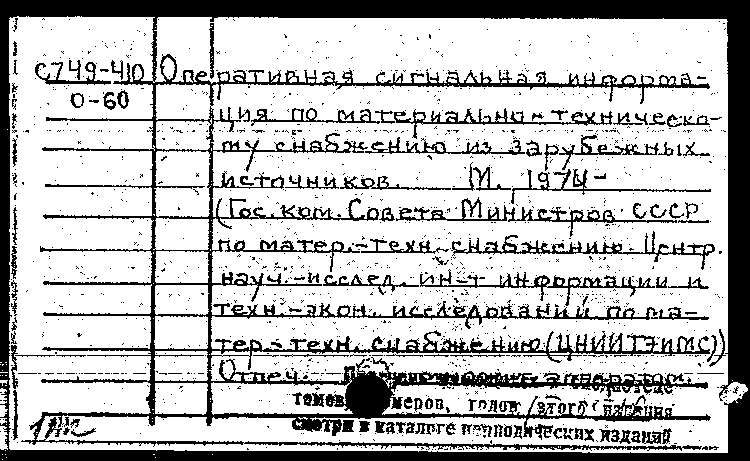 С749-410 Оперативная сигнальная информа-
О-60
ция по материально-техническо-
му снабжению из зарубежных
источников. М., 1974-
(Гос. ком. Совета Министров СССР
по матер.-техн. снабжению. Центр.
науч.-исслед. ин-т информации и
техн.-экон. исследований по ма-
тер.-техн. снабжению (ЦНИИТЭИМС))
Отпеч. множит. аппаратом.
томов, номеров, годов этого издания
смотри в каталоге периодических изданий